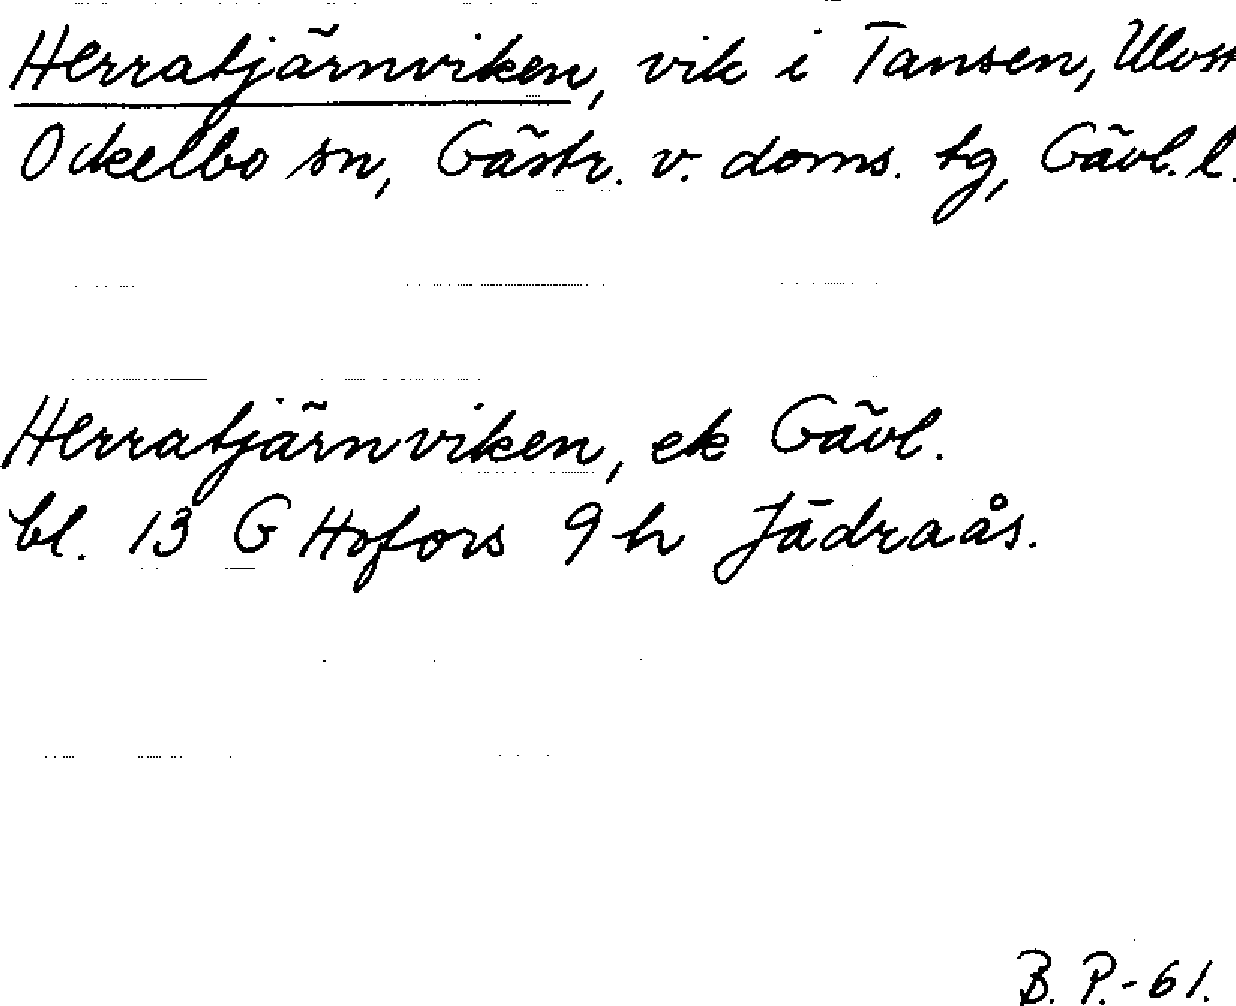 Herratjärnviken, vik i Tansen, Ulvst
Ockelbo sn, Gästr. v. doms. tg, Gävl. l.
Herratjärnviken, ek Gävl.
bl. 13 G Hofors 9 h Jädraås.
B. P.-61.